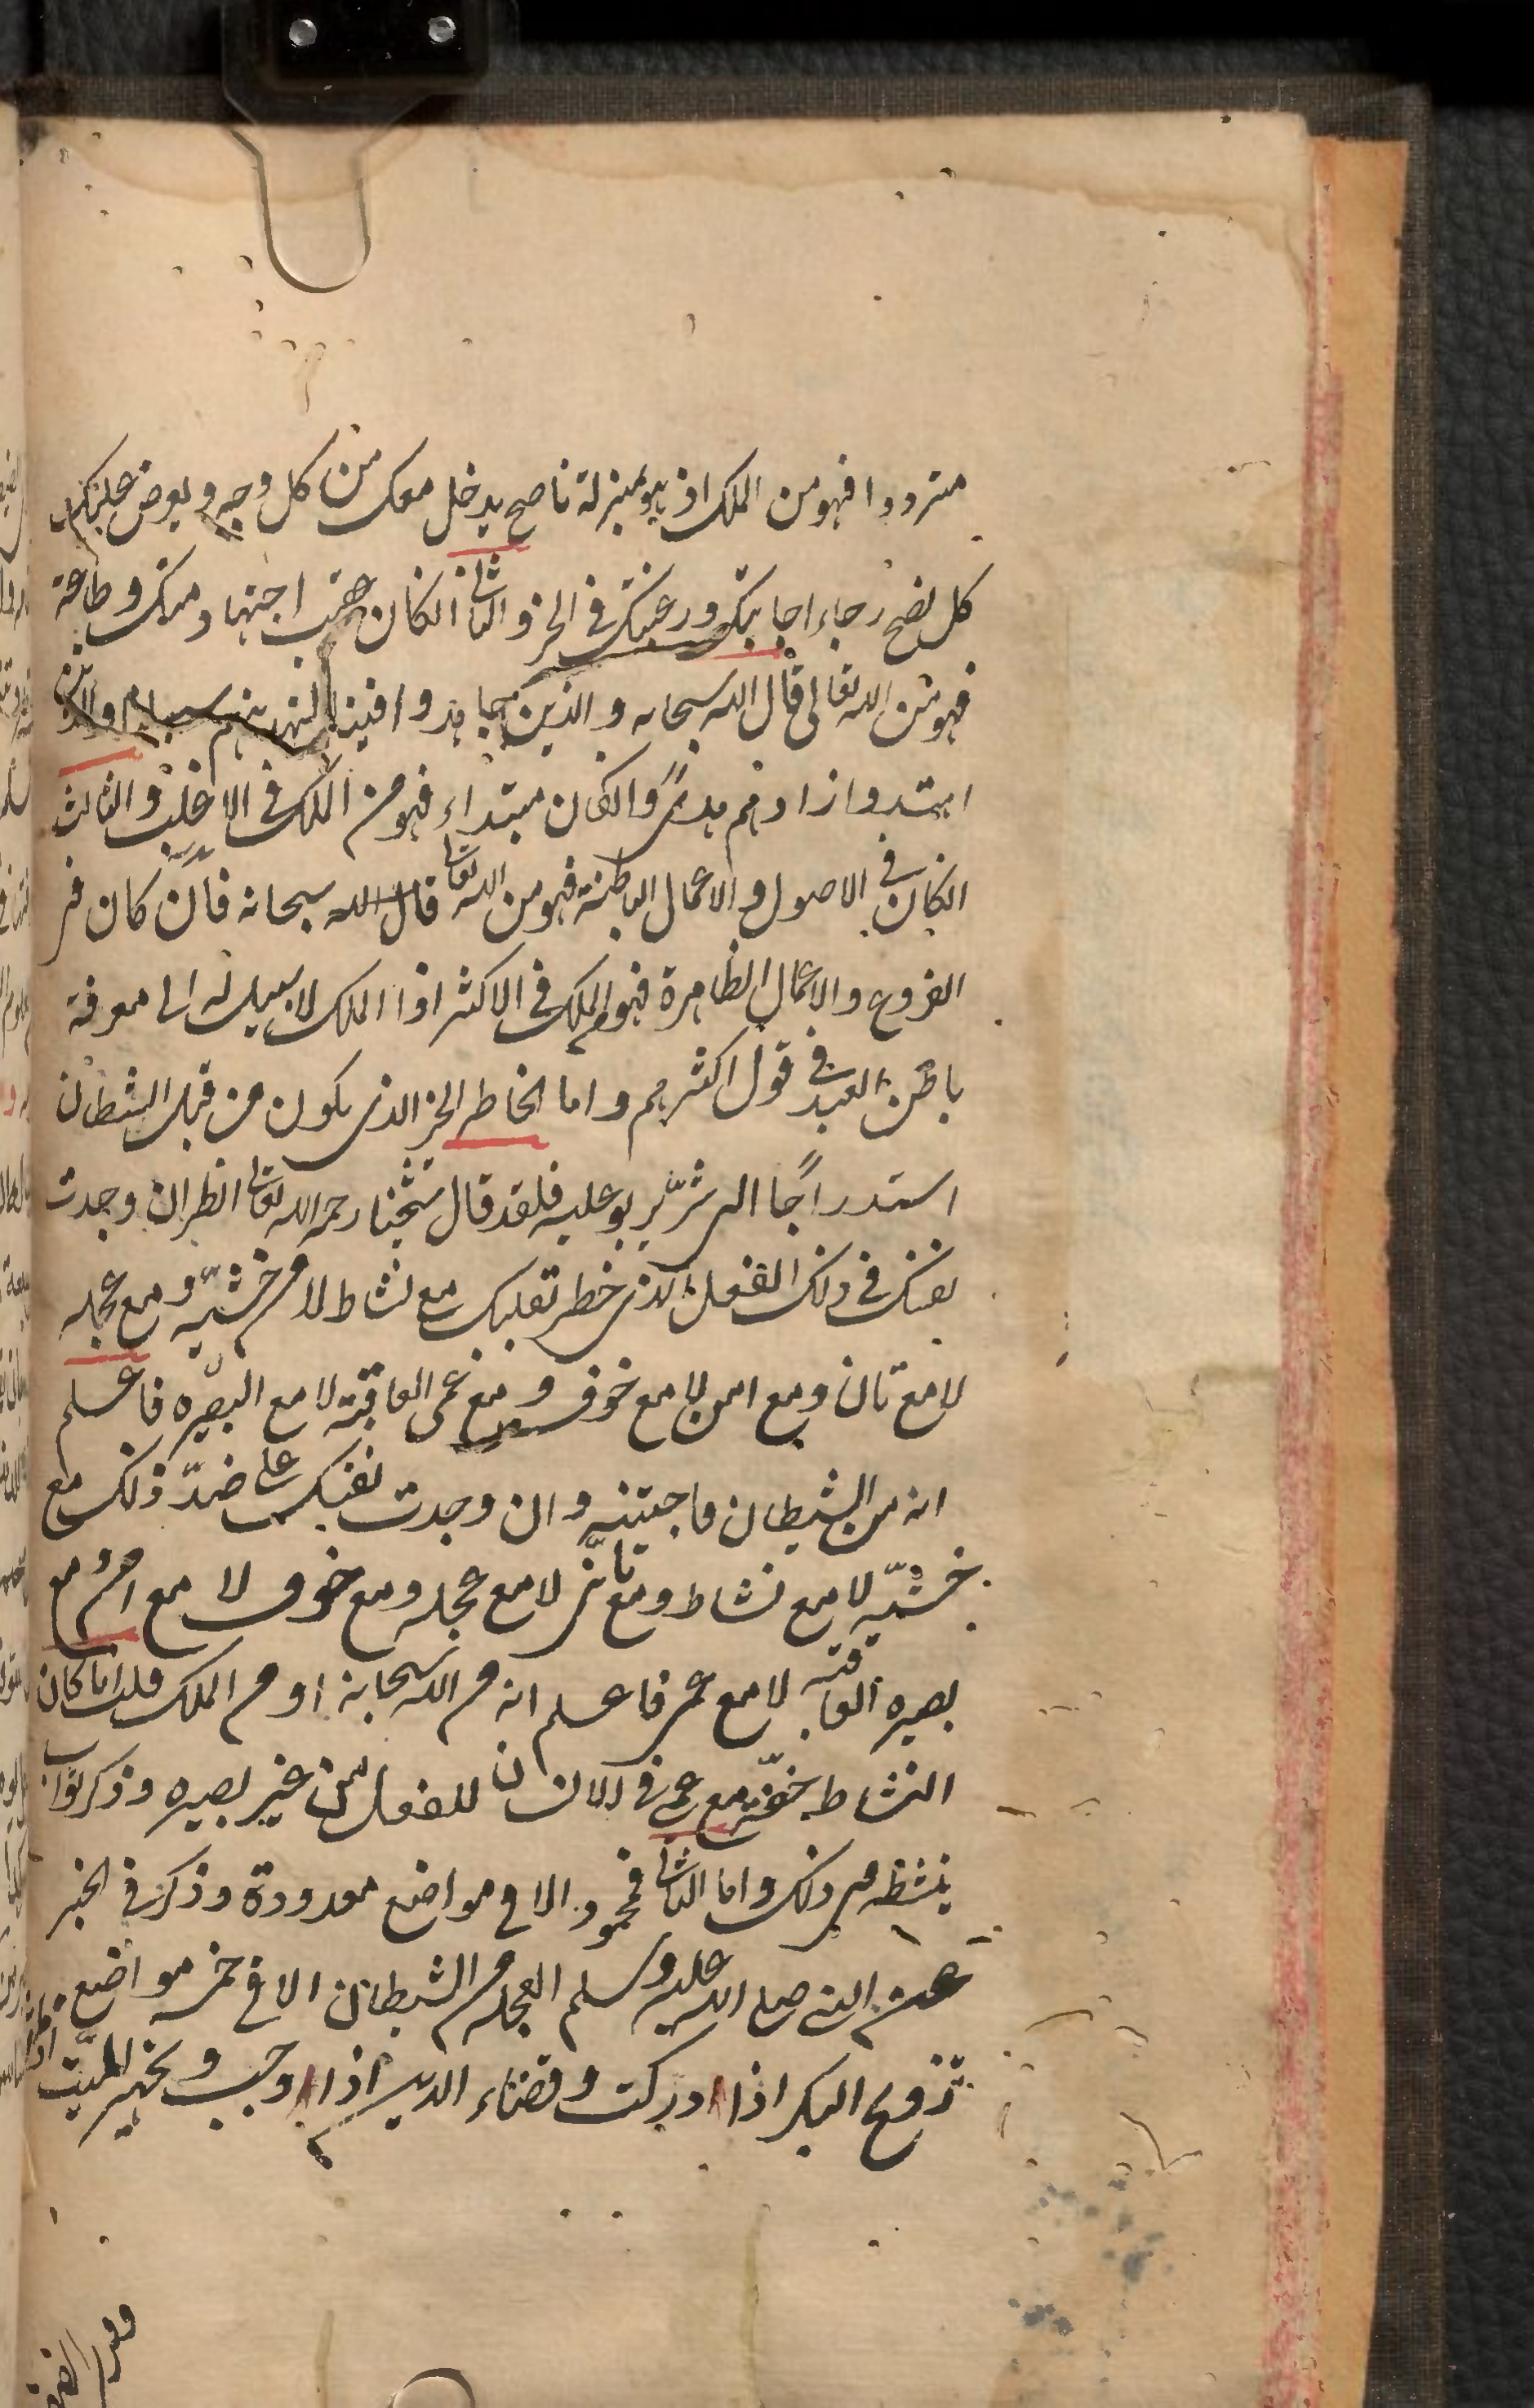 مترددا فهو من الملك اذ هو بمنزلة ناصح يدخل معك من كل وجه و يعرض عليك
كل نصح رجاء اجابتك ورغبتك في الخير والثاني انكان عقيب اجتهاد منك وطاعة
فهو من الله تعالى قال الله سبحانه والذين جاهدوا فينا لنهدينهم سبلنا والذين
اهتدوا زادهم هدىً وانكان مبتداء فهو من الملك في الاغلب والثالث
انكان في الاصول والاعمال الباطنة فهو من الله تعالى قال الله سبحانه فان كان في
الفروع والاعمال الظاهرة فهو من الملك في الاكثر اذا الملك لا سبيل له الى معرفة
باطن العبد في قول اكثرهم واما الخاطر الخير الذي يكون من قبل الشيطان
استدراجًا الى شرّ يربو عليه فلقد قال شيخنا رحمه الله تعالى انظر ان وجدت
نفسك في ذلك الفعل الذي خطر بقلبك مع نشاط لا مع خشيّة و مع عجلة
لا مع تان ومع امن لا مع خوف و مع عمى العاقبة لا مع البصيرة فاعلم
انه من الشيطان فاجتنبه وان وجدت نفسك على ضدّ ذلك مع
خشيّة لا مع نشاط ومع تأنّي لا مع عجلة ومع خوف لا مع امن مع
بصيرة العاقبة لا مع عمى فاعلم انه من الله سبحانه او من الملك قلت انا كان
النشاط خفّة مع عمى في الانسان للفعل من غير بصيرة وذكر ثواب
ينشطه من ذلك واما التأني فمحمود الا في مواضع معدودة وذكر في الخبر
عن النبي صلى الله عليه وسلم العجلة من الشيطان الا في خمسة مواضع
تزويج البكر اذا ادركت وقضاء الدين اذا وجب و تجهيز الميّت اذا